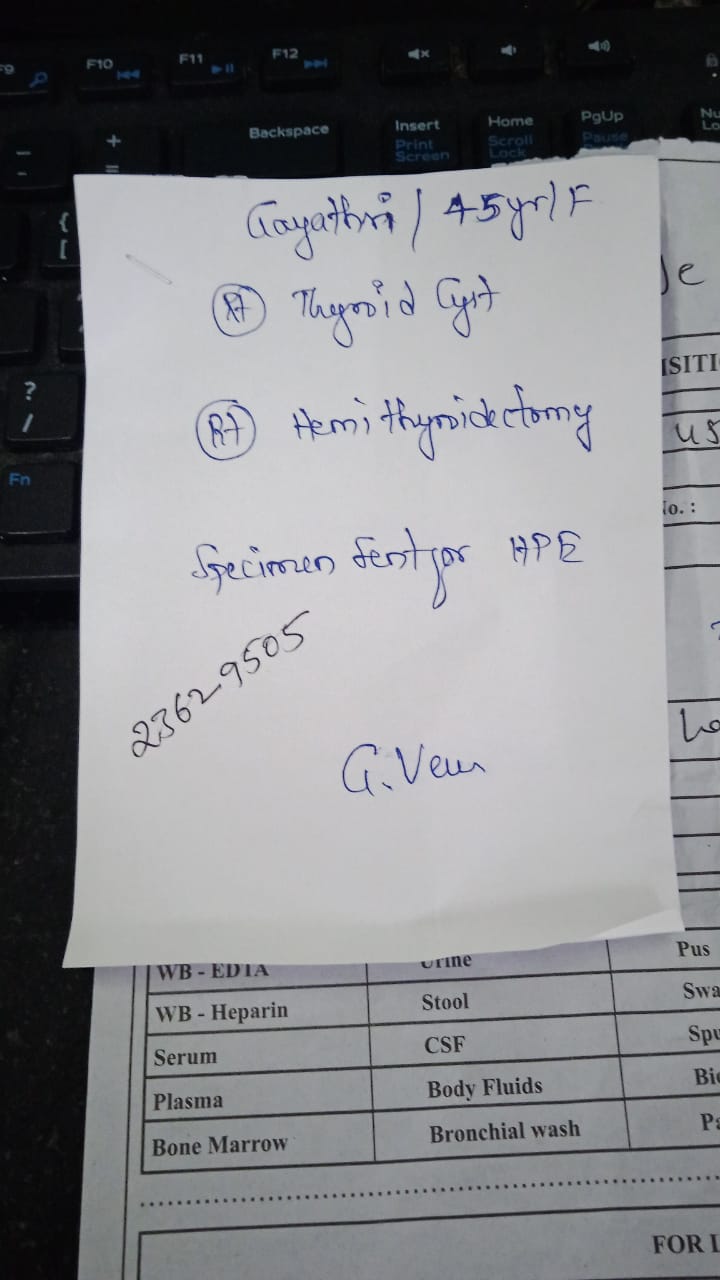 F9
F10
F11
F12
Backspace
Insert
Print
Screen
Home
Scroll
Lock
PgUp
Pause
+
=
{
[
?
/
Fn
Gayathri / 45yr/F
Rt Thyroid Cyst
Rt Hemithyroidectomy
Specimen sent for HPE
23629505
No. :
WB - EDTA
Urine
Pus
WB - Heparin
Stool
Serum
CSF
Plasma
Body Fluids
Bone Marrow
Bronchial wash
FOR